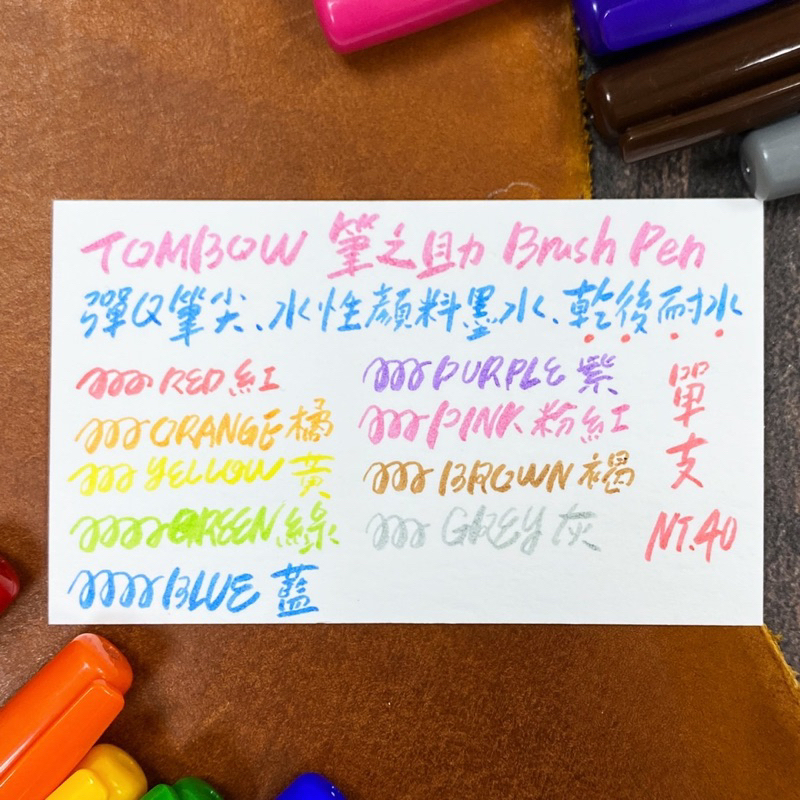 TOMBOW 筆之助 Brush Pen
彈Q筆尖、水性顏料墨水、乾後耐水
RED 紅
ORANGE 橘
YELLOW 黃
GREEN 綠
BLUE 藍
PURPLE 紫
PINK 粉紅
BROWN 褐
GREY 灰
單支
NT.40